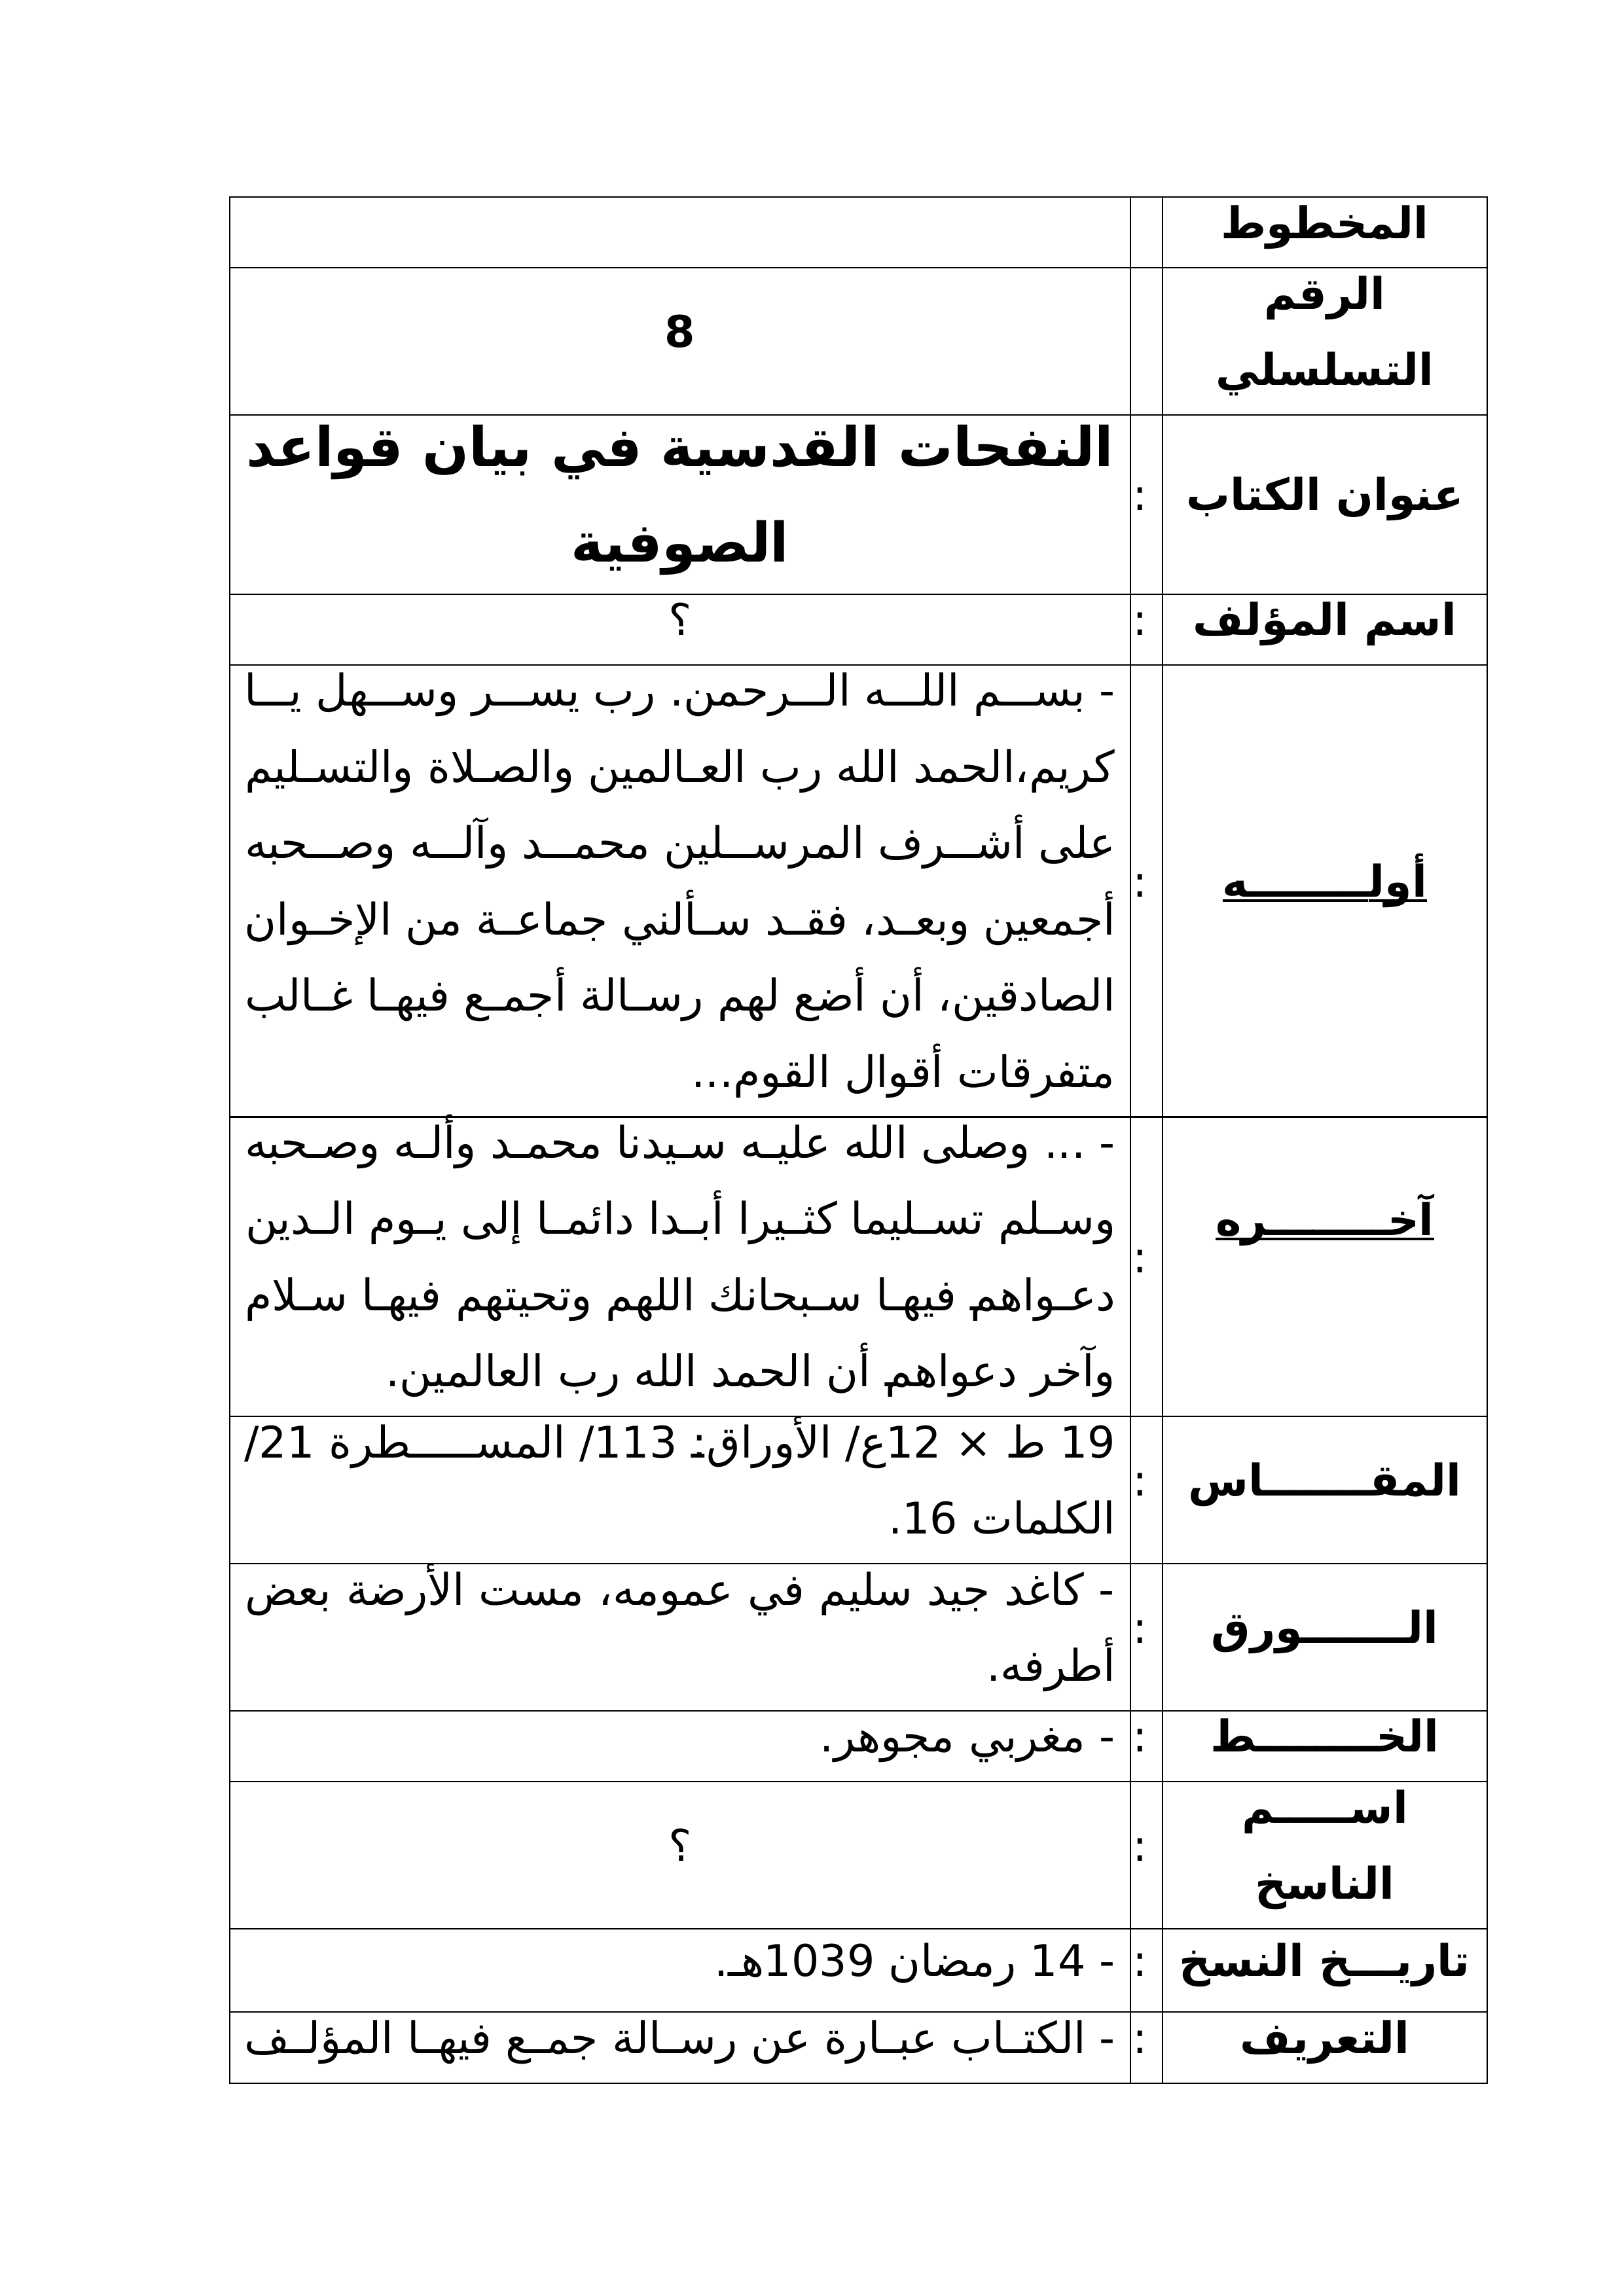 المخطوط
الرقم
التسلسلي
8
عنوان الكتاب
:
النفحات القدسية في بيان قواعد
الصوفية
اسم المؤلف
:
؟
أولـــــــــه
:
- بســم اللــه الــرحمن. رب يســر وســهل يــا
كريم،الحمد الله رب العـالمين والصـلاة والتسـليم
على أشــرف المرســلين محمــد وآلــه وصــحبه
أجمعين وبعـد، فقـد سـألني جماعـة من الإخـوان
الصادقين، أن أضع لهم رسـالة أجمـع فيهـا غـالب
متفرقات أقوال القوم...
آخـــــــــره
:
- ... وصلى الله عليـه سـيدنا محمـد وألـه وصـحبه
وسـلم تسـليما كثـيرا أبـدا دائمـا إلى يـوم الـدين
دعـواهم فيهـا سـبحانك اللهم وتحيتهم فيهـا سـلام
وآخر دعواهم أن الحمد الله رب العالمين.
المقــــــــاس
:
19 ط × 12ع/ الأوراق: 113/ المســـــطرة 21/
الكلمات 16.
الـــــــــورق
:
- كاغد جيد سليم في عمومه، مست الأرضة بعض
أطرفه.
الخـــــــــط
:
- مغربي مجوهر.
اســــــم
الناسخ
:
؟
تاريـــخ النسخ
:
- 14 رمضان 1039هـ.
التعريف
:
- الكتـاب عبـارة عن رسـالة جمـع فيهـا المؤلـف